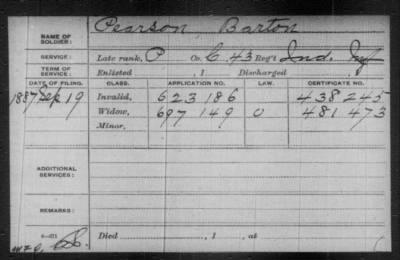 Pearson, Barton
NAME OF SOLDIER:
SERVICE: Late rank, P Co. C, 43 Reg't Ind. Inf
TERM OF SERVICE: Enlisted , 1 Discharged
DATE OF FILING. CLASS. APPLICATION NO. LAW. CERTIFICATE NO.
1887 Sep 19 Invalid, 623 186 438 245
Widow, 697 149 O 481 473
Minor,
ADDITIONAL SERVICES:
REMARKS:
Died , 1 , at